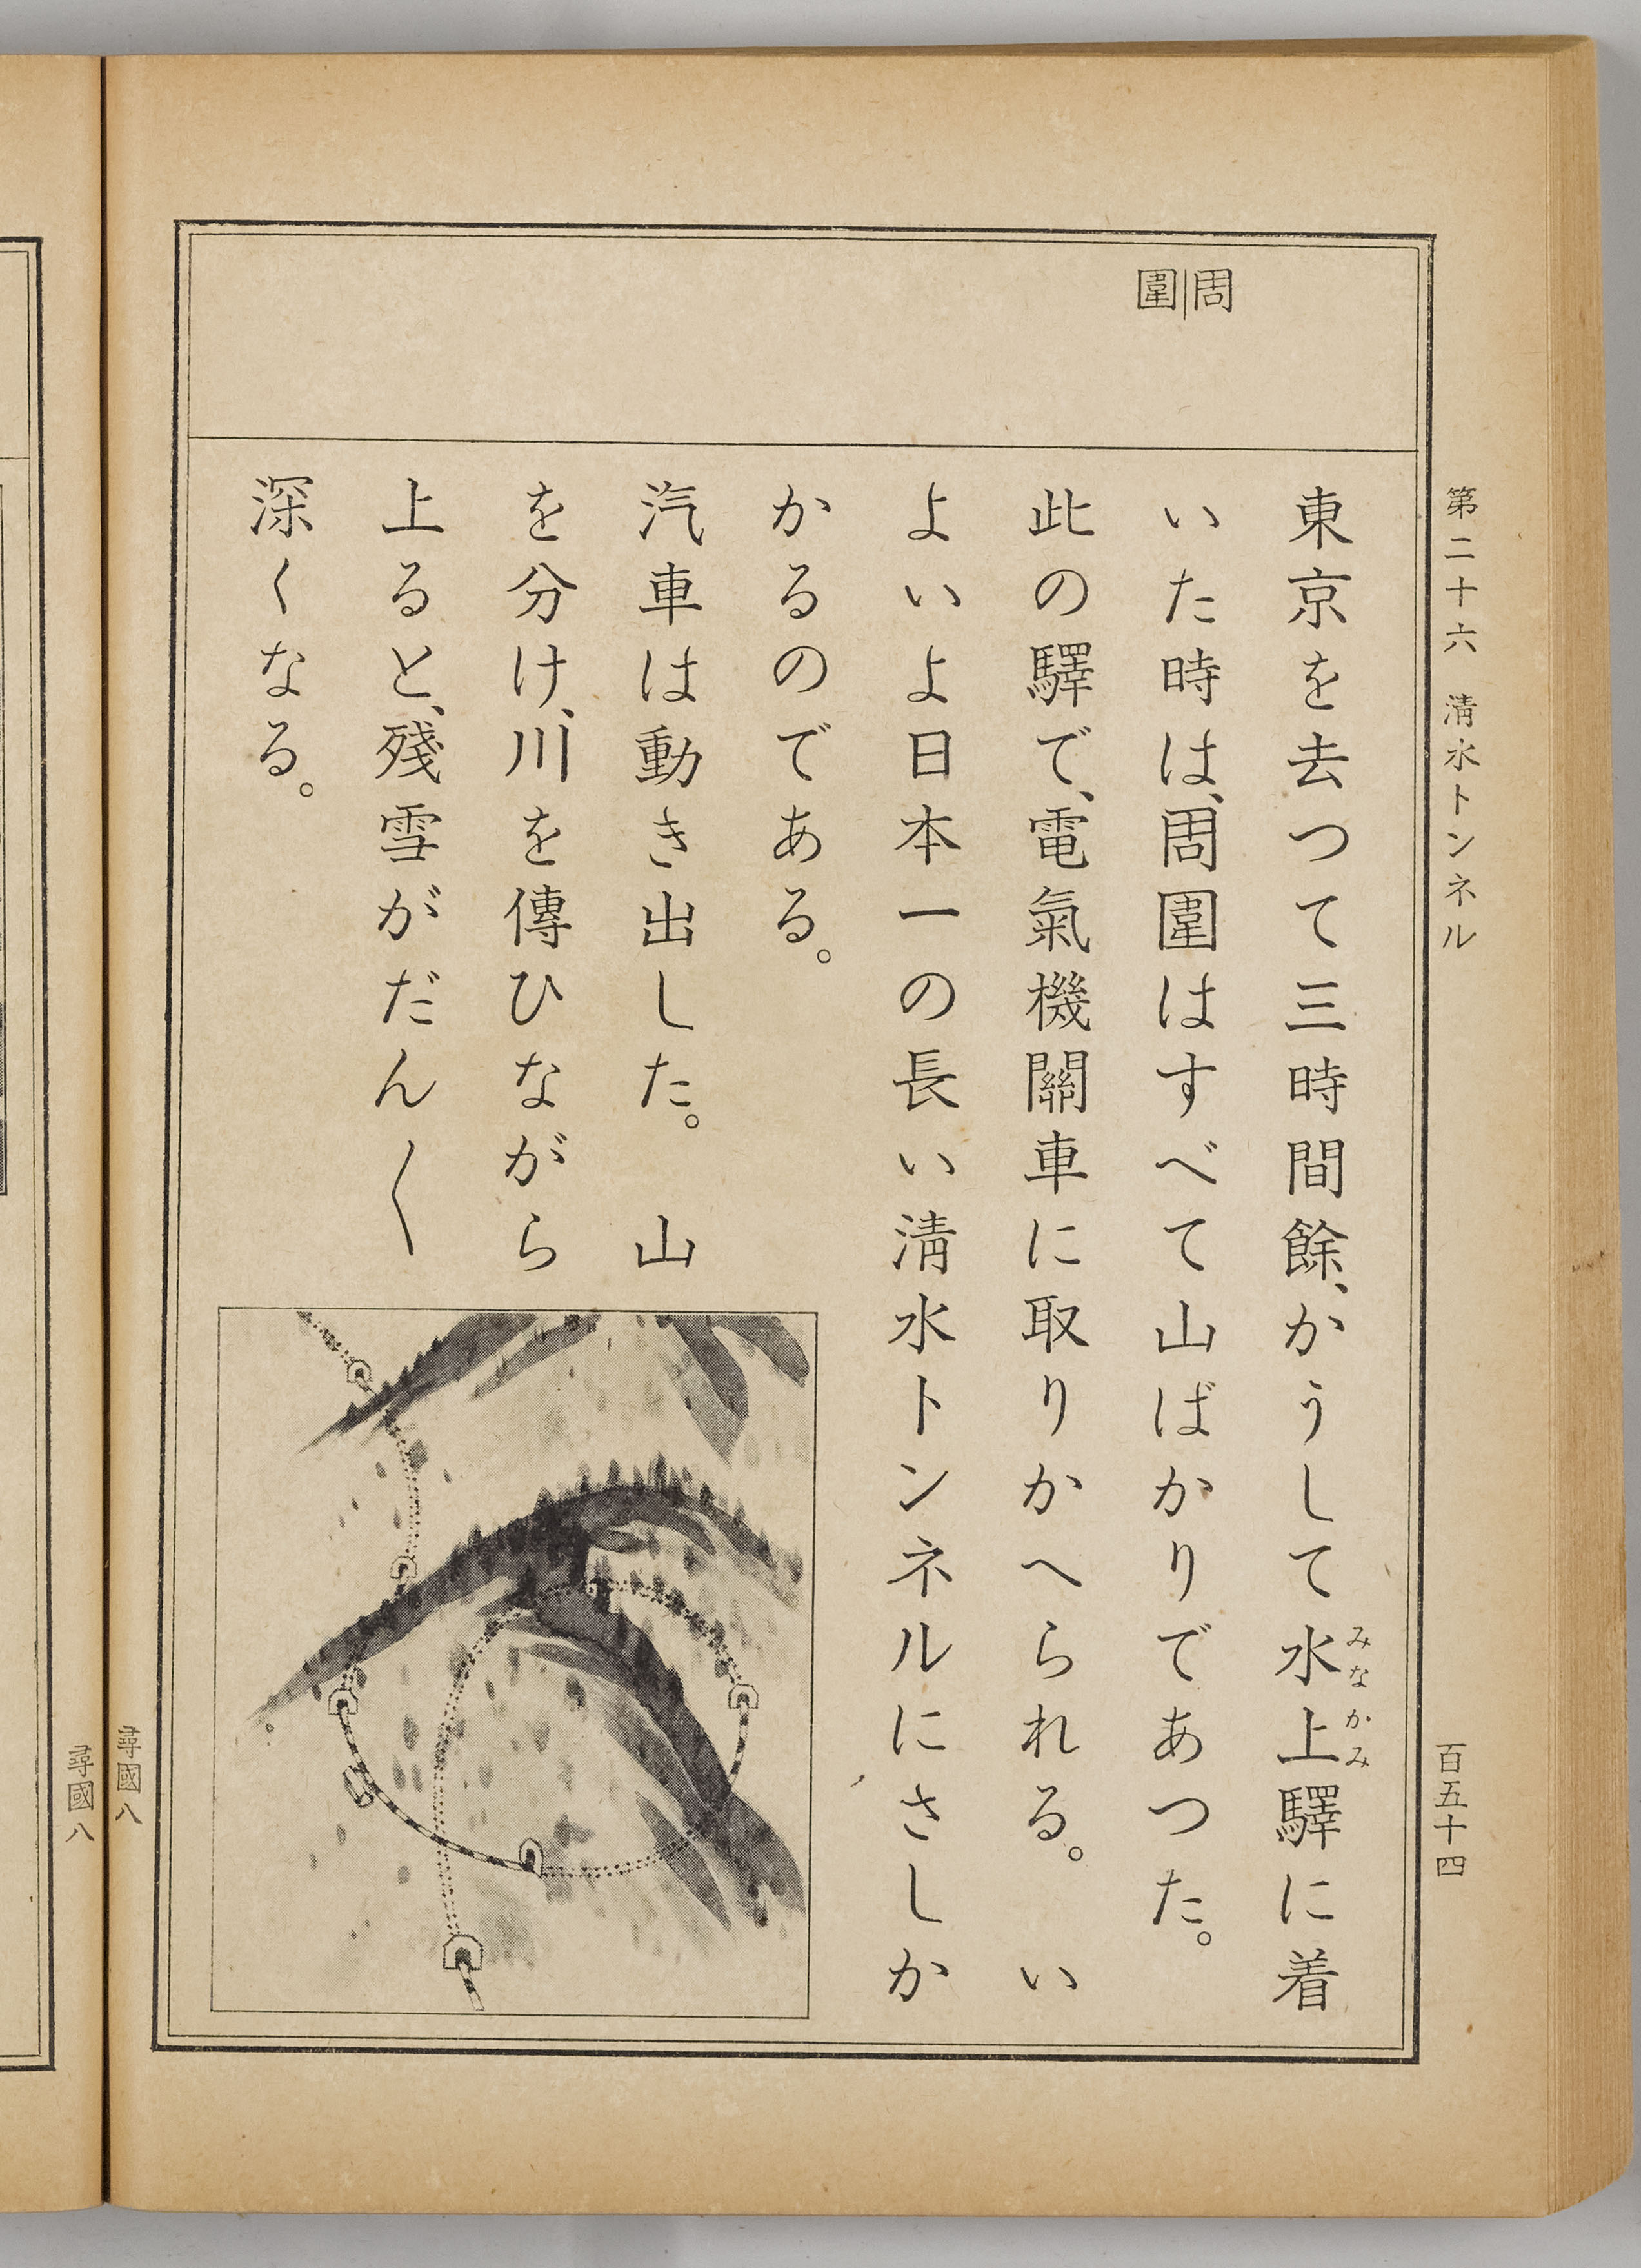 第二十六 淸水トンネル 百五十四
周
圍
東京を去つて三時間餘、かうして水上驛に着
みなかみ
いた時は、周圍はすべて山ばかりであつた。
此の驛で、電氣機關車に取りかへられる。い
よいよ日本一の長い淸水トンネルにさしか
かるのである。
汽車は動き出した。山
を分け、川を傳ひながら
上ると、殘雪がだん〱
深くなる。
尋國八
尋國八